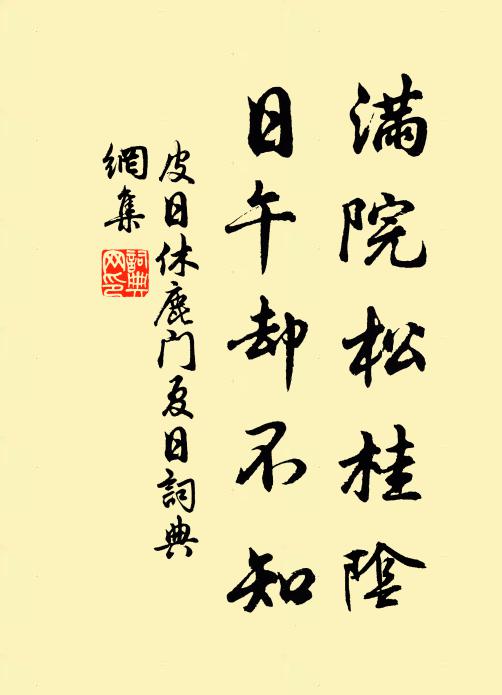 滿院松桂陰
日午却不知
皮日休鹿門夏日詞典
網集
詞典
网印